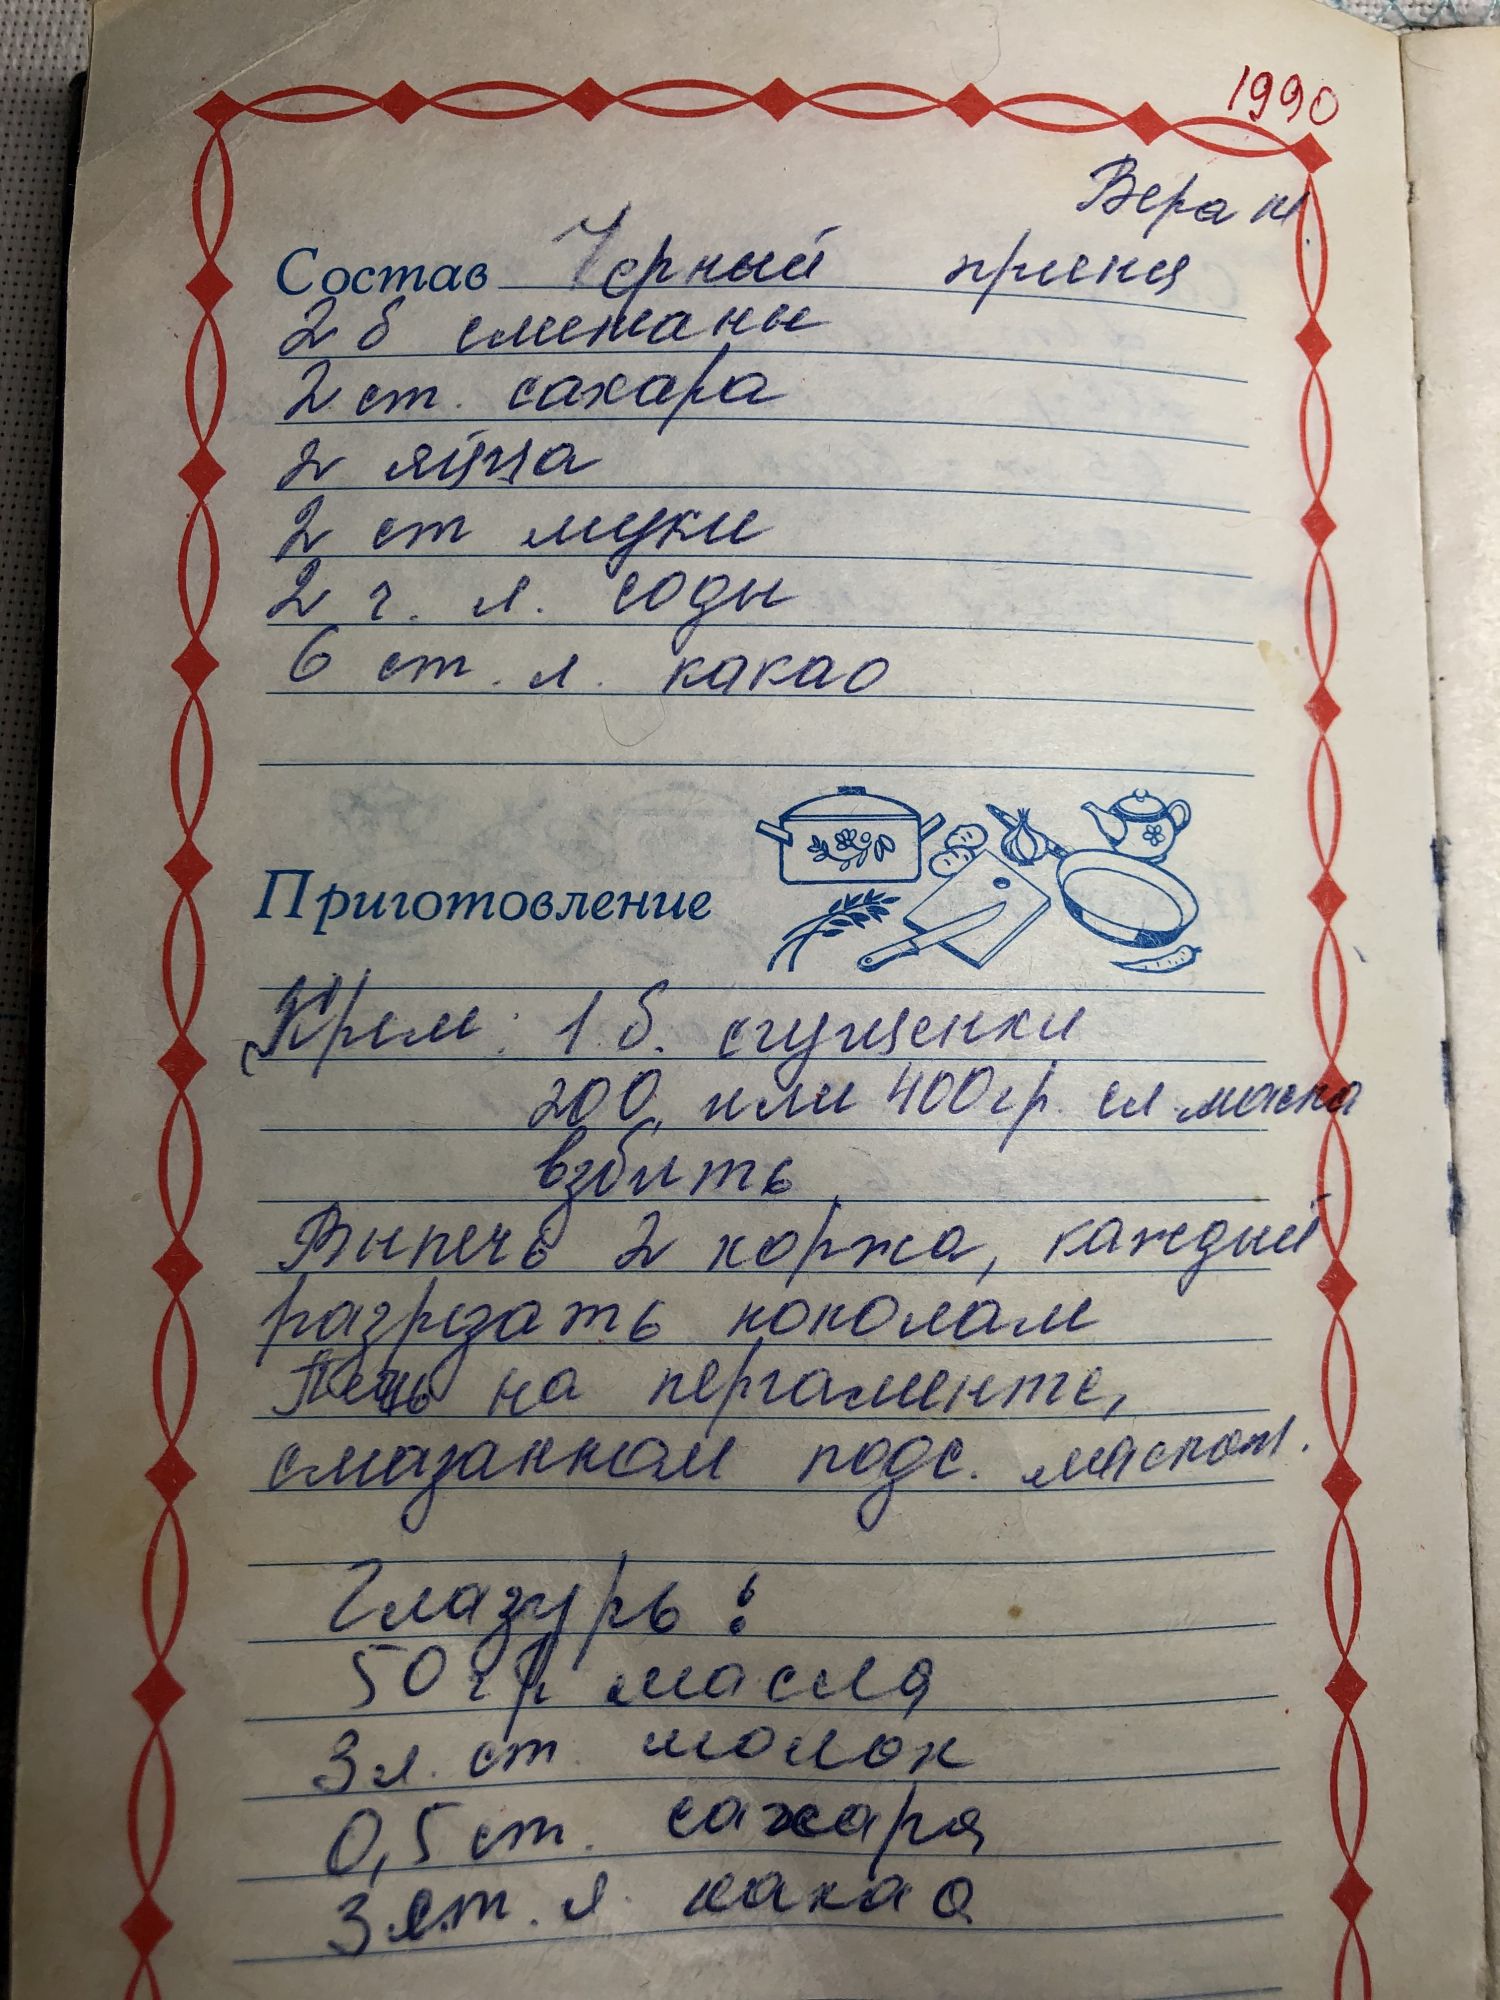 1990
Вера Ш
Состав Черный принц
2 б сметаны
2 ст. сахара
2 яйца
2 ст муки
2 ч. л. соды
6 ст. л. какао
Приготовление
Крем: 1 б. сгущенки
200 или 400 гр. сл. масла
взбить
Выпечь 2 коржа, каждый
разрезать пополам
Печь на пергаменте,
смазанном подс. маслом.
Глазурь:
50 гр масла
3 л. ст. молок
0,5 ст. сахара
3 ст. л. какао